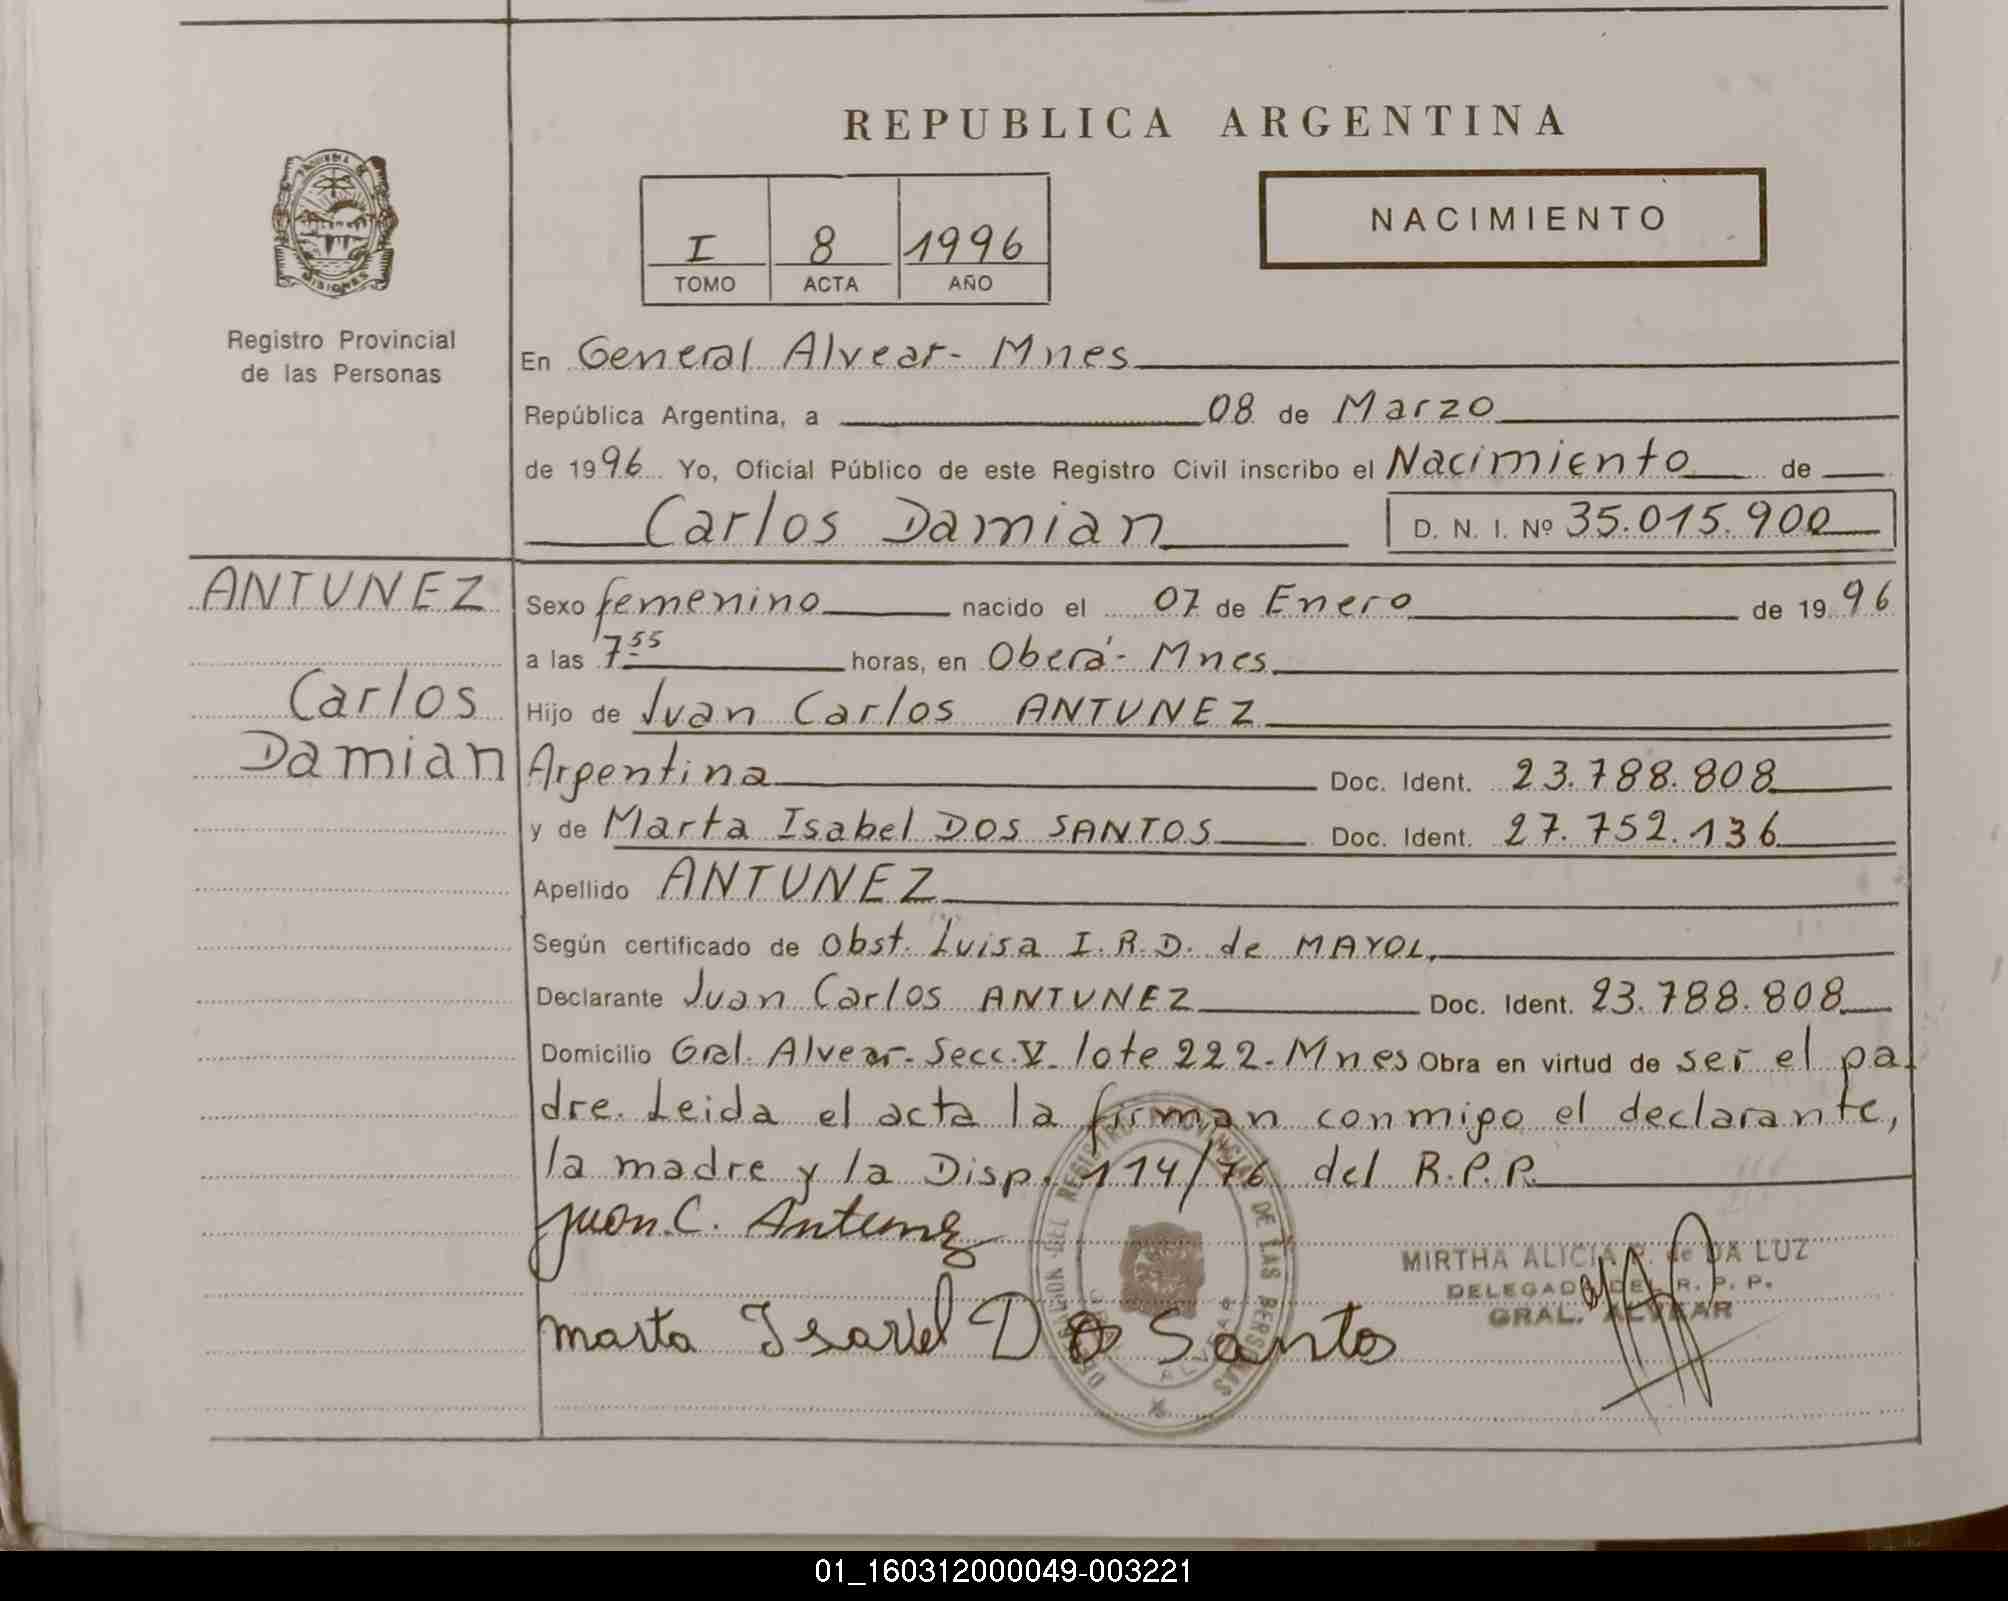 REPUBLICA ARGENTINA
MISIONES
Registro Provincial
de las Personas
I 8 1996
TOMO ACTA AÑO
NACIMIENTO
En General Alvear - Mnes
República Argentina, a 08 de Marzo
de 1996 Yo, Oficial Público de este Registro Civil inscribo el Nacimiento de
Carlos Damian D. N. I. Nº 35.015.900
ANTUNEZ
Carlos
Damian
Sexo femenino nacido el 07 de Enero de 1996
a las 7 55 horas, en Oberá - Mnes
Hijo de Juan Carlos ANTUNEZ
Argentina Doc. Ident. 23.788.808
y de Marta Isabel DOS SANTOS Doc. Ident. 27.752.136
Apellido ANTUNEZ
Según certificado de Obst. Luisa I. R. D. de MAYOL.
Declarante Juan Carlos ANTUNEZ Doc. Ident. 23.788.808
Domicilio Gral. Alvear - Secc. V lote 222 - Mnes Obra en virtud de ser el pa
dre. Leida el acta la firman conmigo el declarante,
la madre y la Disp. 114/76 del R.P.P.
Juan C. Antunez
marta Isavel Do Santos
DELEGACION DEL REGISTRO PROVINCIAL DE LAS PERSONAS
MIRTHA ALICIA de DA LUZ
DELEGADO DEL R. P. P.
GRAL. ALVEAR
01_160312000049-003221